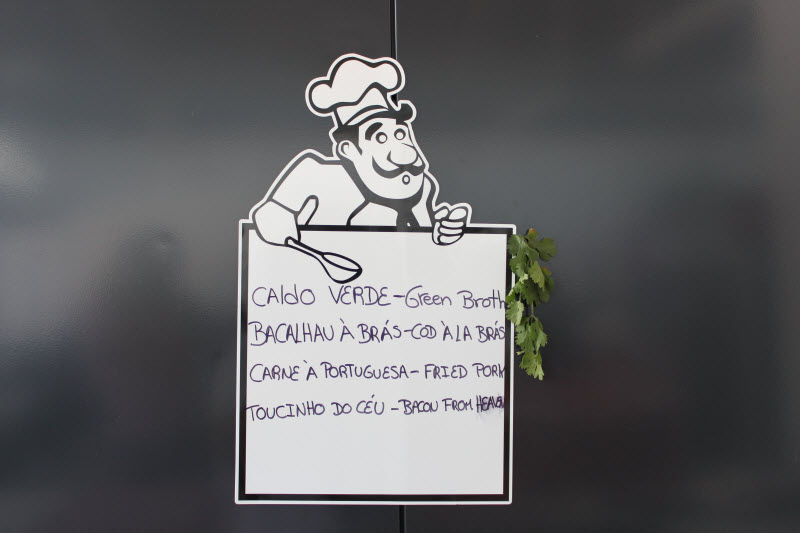 CALDO VERDE - Green Broth
BACALHAU À BRÁS - COD À LA BRÁS
CARNE À PORTUGUESA - FRIED PORK
TOUCINHO DO CÉU - BACON FROM HEAVEN